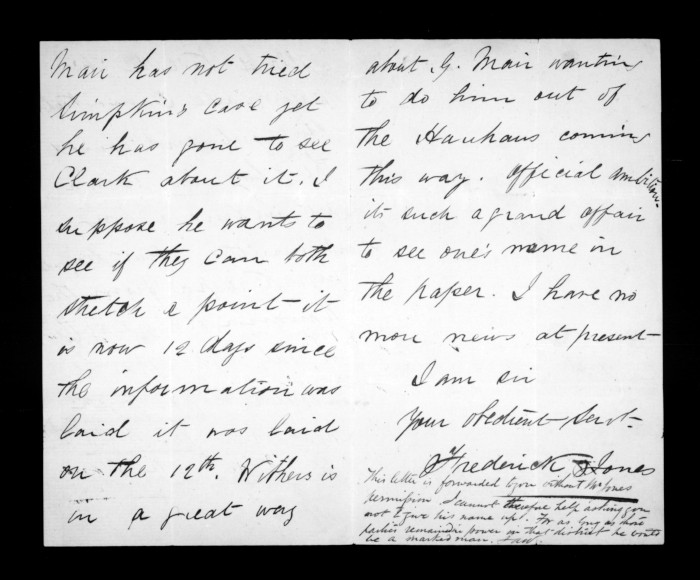 Mair has not tried
Simpkins case yet
he has gone to see
Clark about it. I
suppose he wants to
see if they can both
stretch a point it
is now 12 days since
the information was
laid it was laid
on the 12th. Withers is
in a great way
about G. Mair wanting
to do him out of
the Hauhaus coming
this way. Official ambition.
its such a grand affair
to see one's name in
the paper. I have no
more news at present
I am sir
Your obedient Servt.
Frederick Jones
This letter is forwarded to you without Mr Jones
permission I cannot therefore help asking you
not to give his name up. For as long as those
parties remain in power in that district he would
be a marked man.